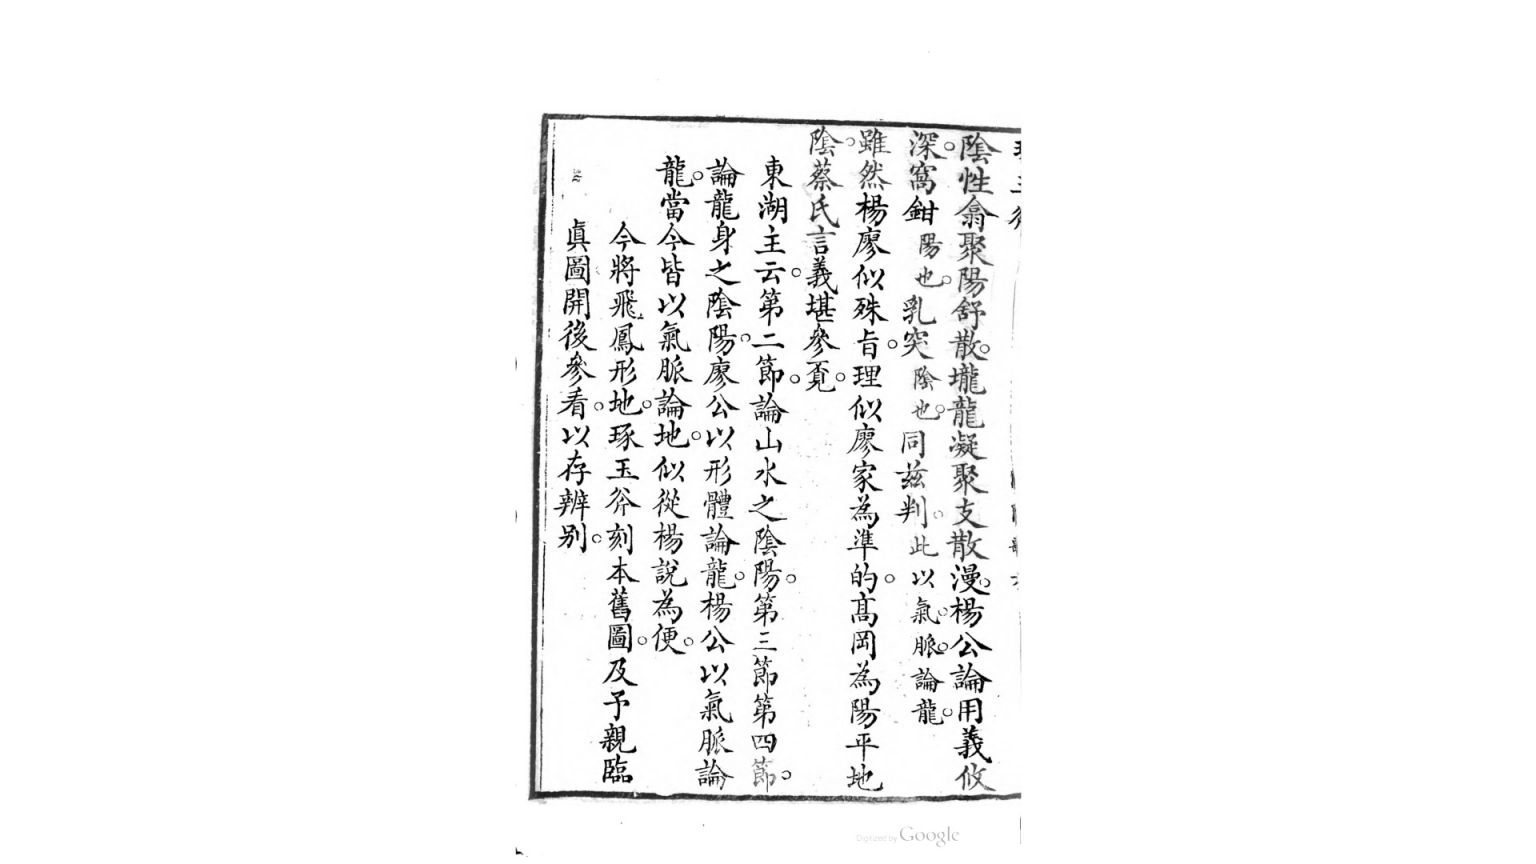 陰性翕聚陽舒散。壠龍凝聚支散漫。楊公論用義攸
深。窩鉗陽也。乳突陰也。同兹判。此以氣脈論龍。
雖然楊廖似殊旨。理似廖家為準的。高岡為陽平地
陰。蔡氏言義堪參覔。
東湖主云。第二節。論山水之陰陽。第三節第四節。
論龍身之陰陽。廖公以形體論龍。楊公以氣脈論
龍。當今皆以氣脈論地。似從楊說為便。
今將飛鳳形地。琢玉斧刻本舊圖。及予親臨
眞圖開後參看。以存辨别。
Digitized by Google